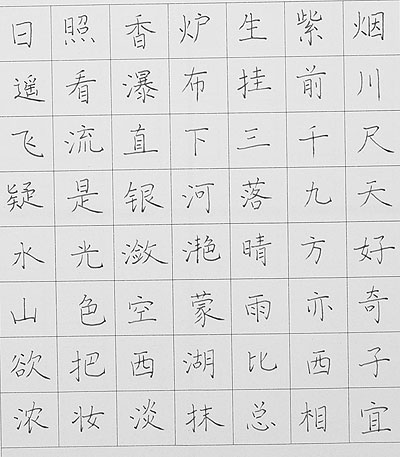 日照香炉生紫烟
遥看瀑布挂前川
飞流直下三千尺
疑是银河落九天
水光潋滟晴方好
山色空蒙雨亦奇
欲把西湖比西子
浓妆淡抹总相宜